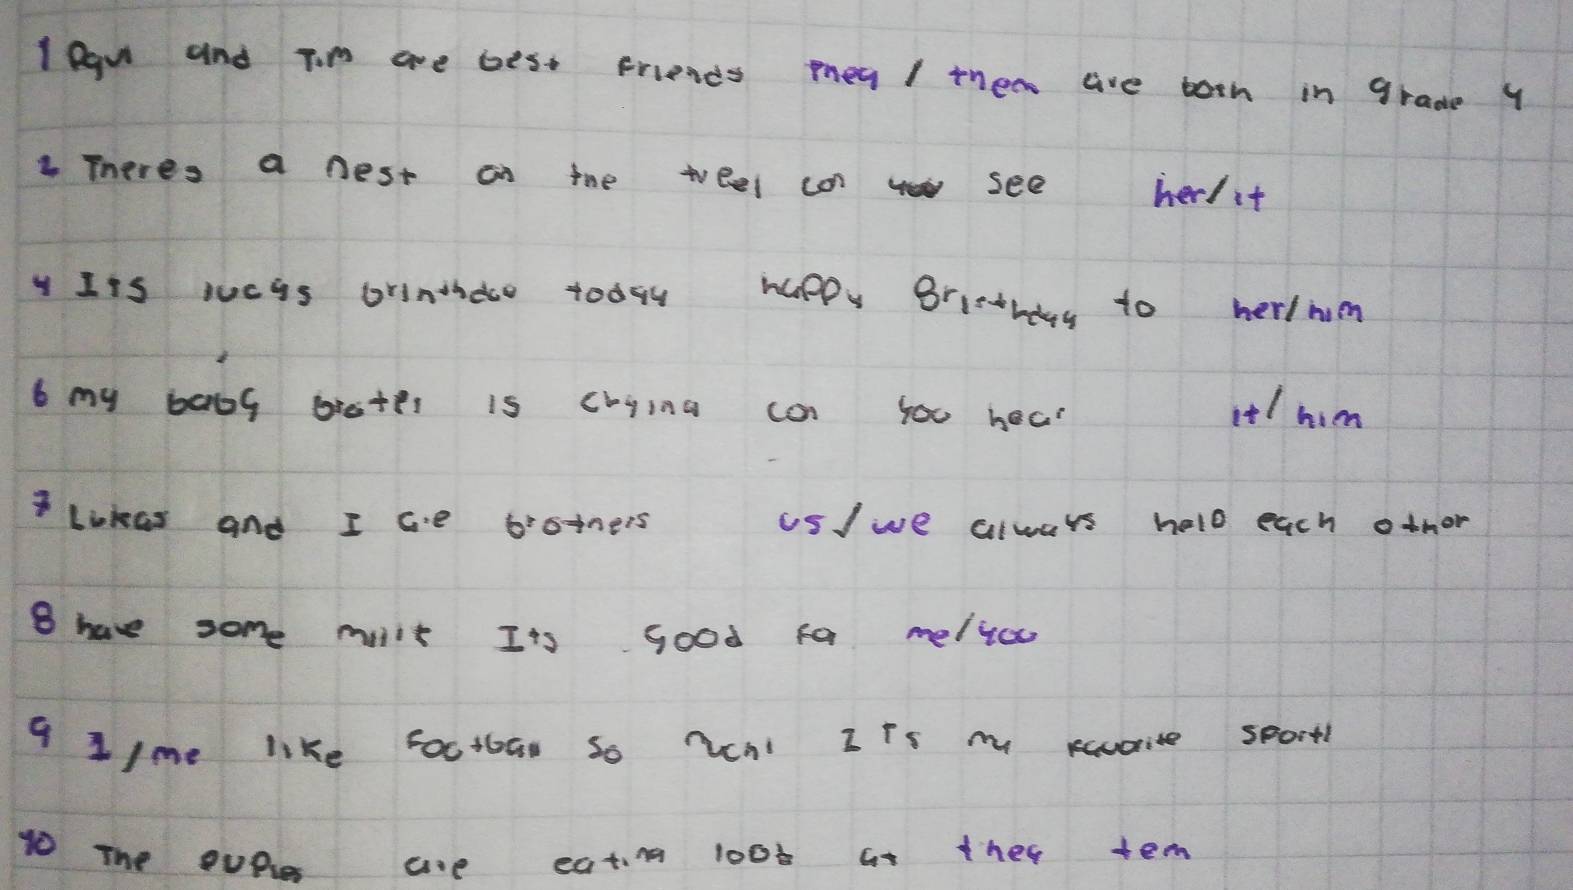 1 Paul and Tim are best Friends they / them are both in grade 4
2 Theres a nest on the tree! can you see her/it
4 Its lucas brinthday today happy Bristhday to her/him
6 my baby broter is crying can you hear it/him
7 Lukas and I are brothers us/we always help each other
8 have some milk Its good fo me/you
9 I/me like football so much! ITs my favorite sport!
10 The pupies are eating look at they tem